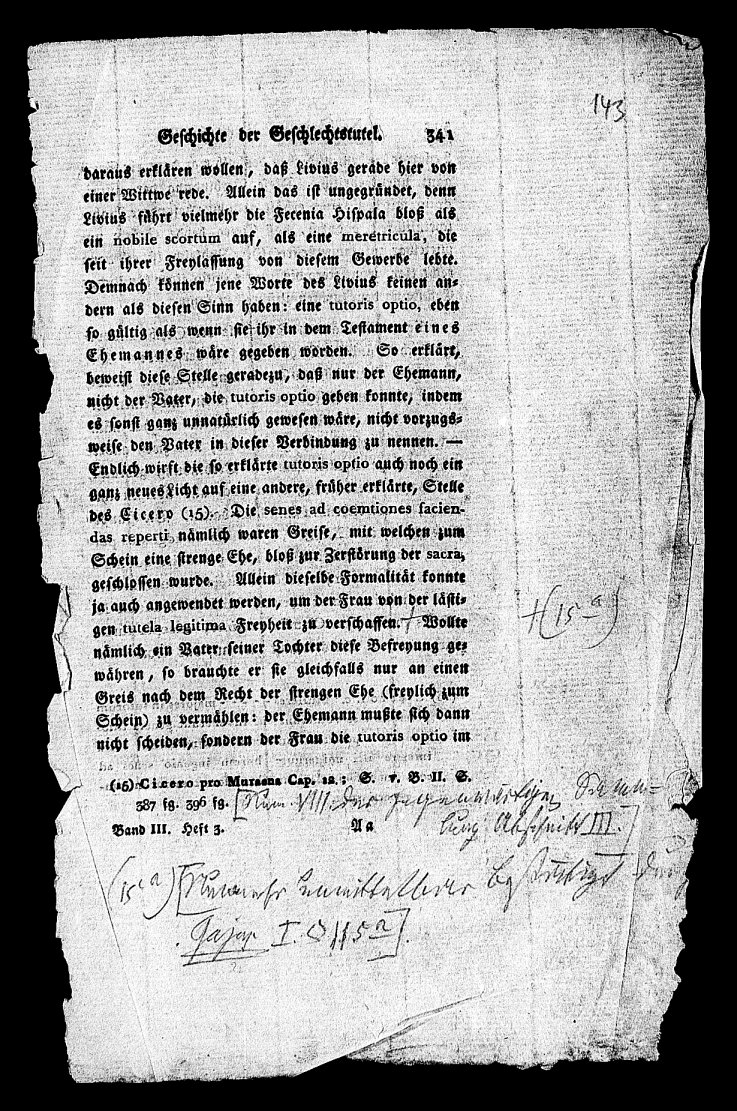 143
Geschichte der Geschlechtstutel. 341
daraus erklären wollen, daß Livius gerade hier von
einer Wittwe rede. Allein das ist ungegründet, denn
Livius führt vielmehr die Fecenia Hispala bloß als
ein nobile scortum auf, als eine meretricula, die
seit ihrer Freylassung von diesem Gewerbe lebte.
Demnach können jene Worte des Livius keinen an-
dern als diesen Sinn haben: eine tutoris optio, eben
so gültig als wenn sie ihr in dem Testament eines
Ehemannes wäre gegeben worden. So erklärt,
beweist diese Stelle geradezu, daß nur der Ehemann,
nicht der Vater, die tutoris optio geben konnte, indem
es sonst ganz unnatürlich gewesen wäre, nicht vorzugs-
weise den Vater in dieser Verbindung zu nennen. —
Endlich wirft die so erklärte tutoris optio auch noch ein
ganz neues Licht auf eine andere, früher erklärte, Stelle
des Cicero (15). Die senes ad coemtiones facien-
das reperti nämlich waren Greise, mit welchen zum
Schein eine strenge Ehe, bloß zur Zerstörung der sacra,
geschlossen wurde. Allein dieselbe Formalität konnte
ja auch angewendet werden, um der Frau von der lästi-
gen tutela legitima Freyheit zu verschaffen. + Wollte
+(15 a)
nämlich ein Vater seiner Tochter diese Befreyung ge-
währen, so brauchte er sie gleichfalls nur an einen
Greis nach dem Recht der strengen Ehe (freylich zum
Schein) zu vermählen: der Ehemann mußte sich dann
nicht scheiden, sondern der Frau die tutoris optio im
(15) Cicero pro Muraena Cap. 12.; S. v. B. II. S.
387 fg. 396 fg. [Num. VIII. der gegenwärtigen Samm-
lung Abschnitt III.]
Band III. Heft 3. Aa
(15 a) [Nunmehr unmittelbar bestätigt durch
Gajus I. § 115 a].